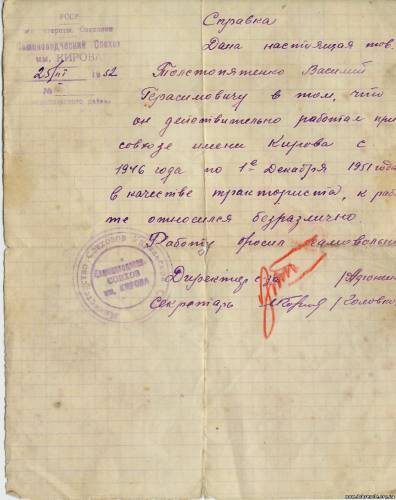 РСФСР
Министерств. Совхозов
Свиноводческий Совхоз
им. КИРОВА
25/III 1952
№
Справка
Дана настоящая тов.
Толстопятенко Василий
Герасимовичу в том, что
он действительно работал при
совхозе имени Кирова с
1946 года по 1е Декабря 1951 года
в качестве тракториста, к рабо
те относился безразлично
Работу бросил самовольно
Директор с/за
Секретарь /Головко
Министерство Совхозов
Свиноводческ.
СОВХОЗ
им. КИРОВА